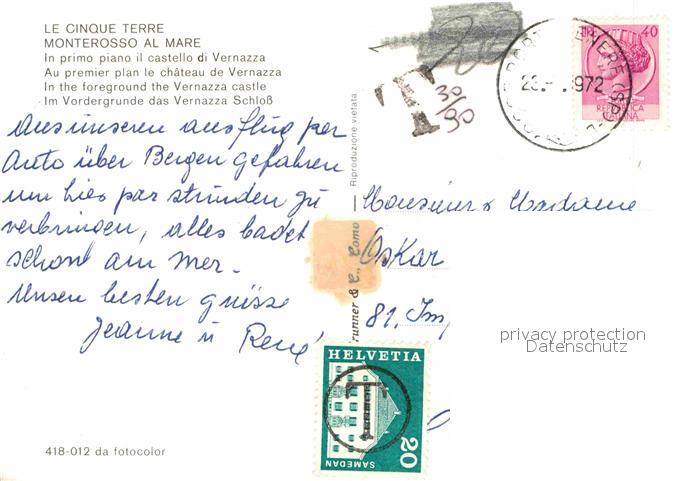 LE CINQUE TERRE
MONTEROSSO AL MARE
In primo piano il castello di Vernazza
Au premier plan le château de Vernazza
In the foreground the Vernazza castle
Im Vordergrunde das Vernazza Schloß
Aus unseren ausflug per
Auto über Bergen gefahren
um hier par stunden zu
verbringen, alles badet
schont am Mer.
Unsen besten grüsse
Jeanne u René
418-012 da fotocolor
Riproduzione vietata
runner & C., Como
T
30/90
1972
40
REPUBBLICA
ITALIANA
Monsieur & Madame
Oskar
81. Im
privacy protection
Datenschutz
HELVETIA
T
SAMEDAN
20